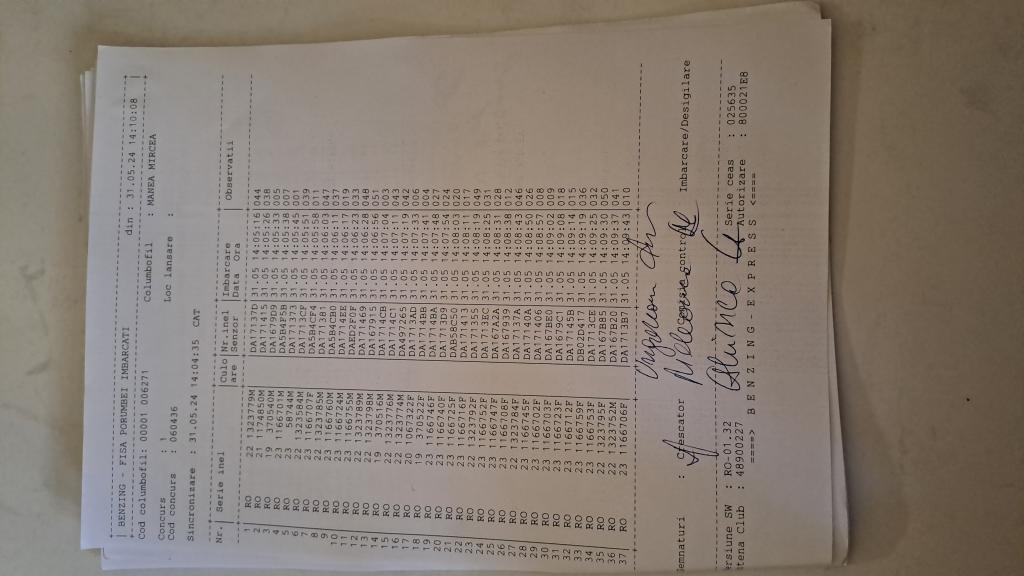 BENZING - FISA PORUMBEI IMBARCATI
din : 31.05.24 14:10:08
Cod columbofil: 00001 006271 Columbofil : MANEA MIRCEA
Concurs : 1
Cod concurs : 060436 Loc lansare :
Sincronizare : 31.05.24 14:04:35 CAT
Nr. Serie inel Culo Nr.inel Imbarcare Observatii
are Senzor Data Ora
1 RO 22 1323779M DA17137D 31.05 14:05:16 044
2 RO 21 1174850M DA171415 31.05 14:05:26 038
3 RO 19 370540M DA1679D9 31.05 14:05:33 005
4 RO 23 1166701M DA5B4F5B 31.05 14:05:38 007
5 RO 23 58744M DA171373 31.05 14:05:45 001
6 RO 22 1323584M DA1713CF 31.05 14:05:51 039
7 RO 23 1166707F DA5B4CF4 31.05 14:05:58 011
8 RO 22 1323785M DA171381 31.05 14:06:03 047
9 RO 23 1166760M DA5B4CB0 31.05 14:06:11 037
10 RO 23 1166724M DA1714EE 31.05 14:06:17 019
11 RO 23 1166755M DAED2FEF 31.05 14:06:23 033
12 RO 22 1323789M DA171469 31.05 14:06:28 048
13 RO 22 1323798M DA167915 31.05 14:06:56 051
14 RO 19 370516M DA1714CB 31.05 14:07:04 003
15 RO 22 1323746M DA1714C1 31.05 14:07:11 043
16 RO 22 1323774M DA497265 31.05 14:07:19 042
17 RO 20 1067322F DA1713AD 31.05 14:07:33 006
18 RO 19 370522F DA1714BB 31.05 14:07:41 004
19 RO 23 1166744F DA1713BA 31.05 14:07:48 027
20 RO 23 1166740F DA17137A 31.05 14:07:54 024
21 RO 23 1166725F DA1713D9 31.05 14:08:03 020
22 RO 23 1166716F DAB58C50 31.05 14:08:11 017
23 RO 22 1323792F DA171413 31.05 14:08:19 049
24 RO 23 1166752F DA171155 31.05 14:08:25 031
25 RO 23 1166747F DA1713EC 31.05 14:08:31 028
26 RO 23 1166708F DA167A2A 31.05 14:08:38 012
27 RO 22 1323784F DA167939 31.05 14:08:45 046
28 RO 23 1166745F DA17137A 31.05 14:08:50 026
29 RO 23 1166702F DA1714DA 31.05 14:08:57 008
30 RO 23 1166703F DA171406 31.05 14:09:02 009
31 RO 23 1166723F DA167BE0 31.05 14:09:08 018
32 RO 23 1166712F DA1679C1 31.05 14:09:14 015
33 RO 23 1166759F DA17145B 31.05 14:09:19 036
34 RO 23 1166753F DB02D417 31.05 14:09:25 032
35 RO 22 1323795F DA1713CE 31.05 14:09:30 050
36 RO 22 1323752M DA167B85 31.05 14:09:37 041
37 RO 23 1166706F DA1713B7 31.05 14:09:43 010
emnaturi : Crescator Imbarcare/Desigilare
ersiune SW : RO-01.32 Serie ceas : 025635
tena Club : 48900227 Autorizare : 800021E8
====> BENZING-EXPRESS <====